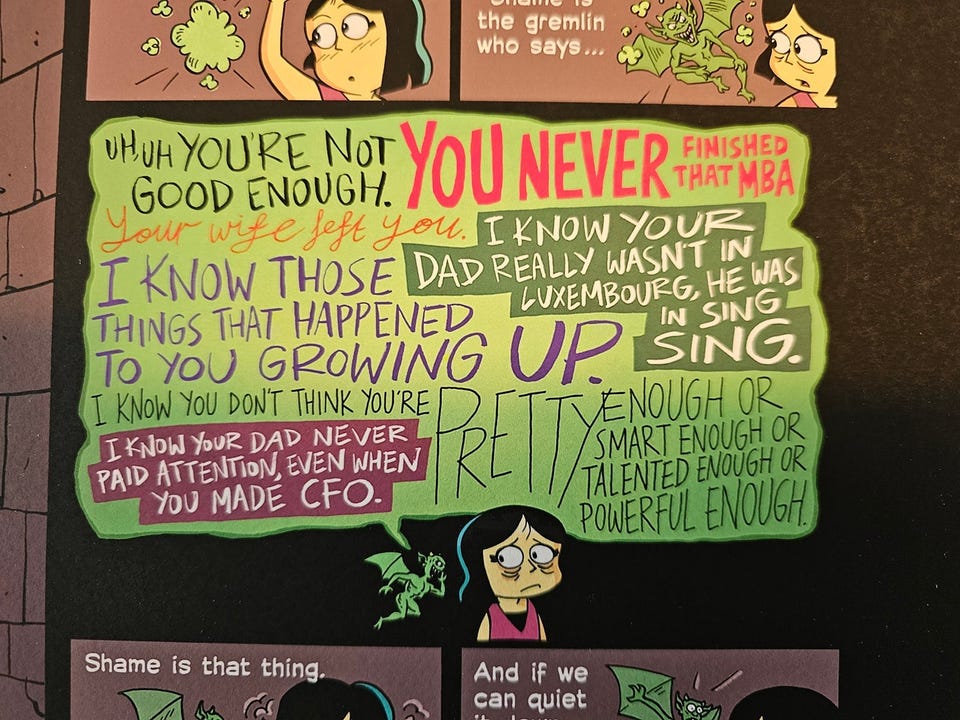 Shame is
the gremlin
who says...
UH, UH YOU'RE NOT
GOOD ENOUGH.
YOU NEVER
FINISHED
THAT MBA
Your wife left you.
I KNOW YOUR
DAD REALLY WASN'T IN
LUXEMBOURG, HE WAS
IN SING
SING.
I KNOW THOSE
THINGS THAT HAPPENED
TO YOU GROWING UP.
I KNOW YOU DON'T THINK YOU'RE
PRETTY ENOUGH OR
SMART ENOUGH OR
TALENTED ENOUGH OR
POWERFUL ENOUGH.
I KNOW YOUR DAD NEVER
PAID ATTENTION, EVEN WHEN
YOU MADE CFO.
Shame is that thing.
And if we
can quiet
it down